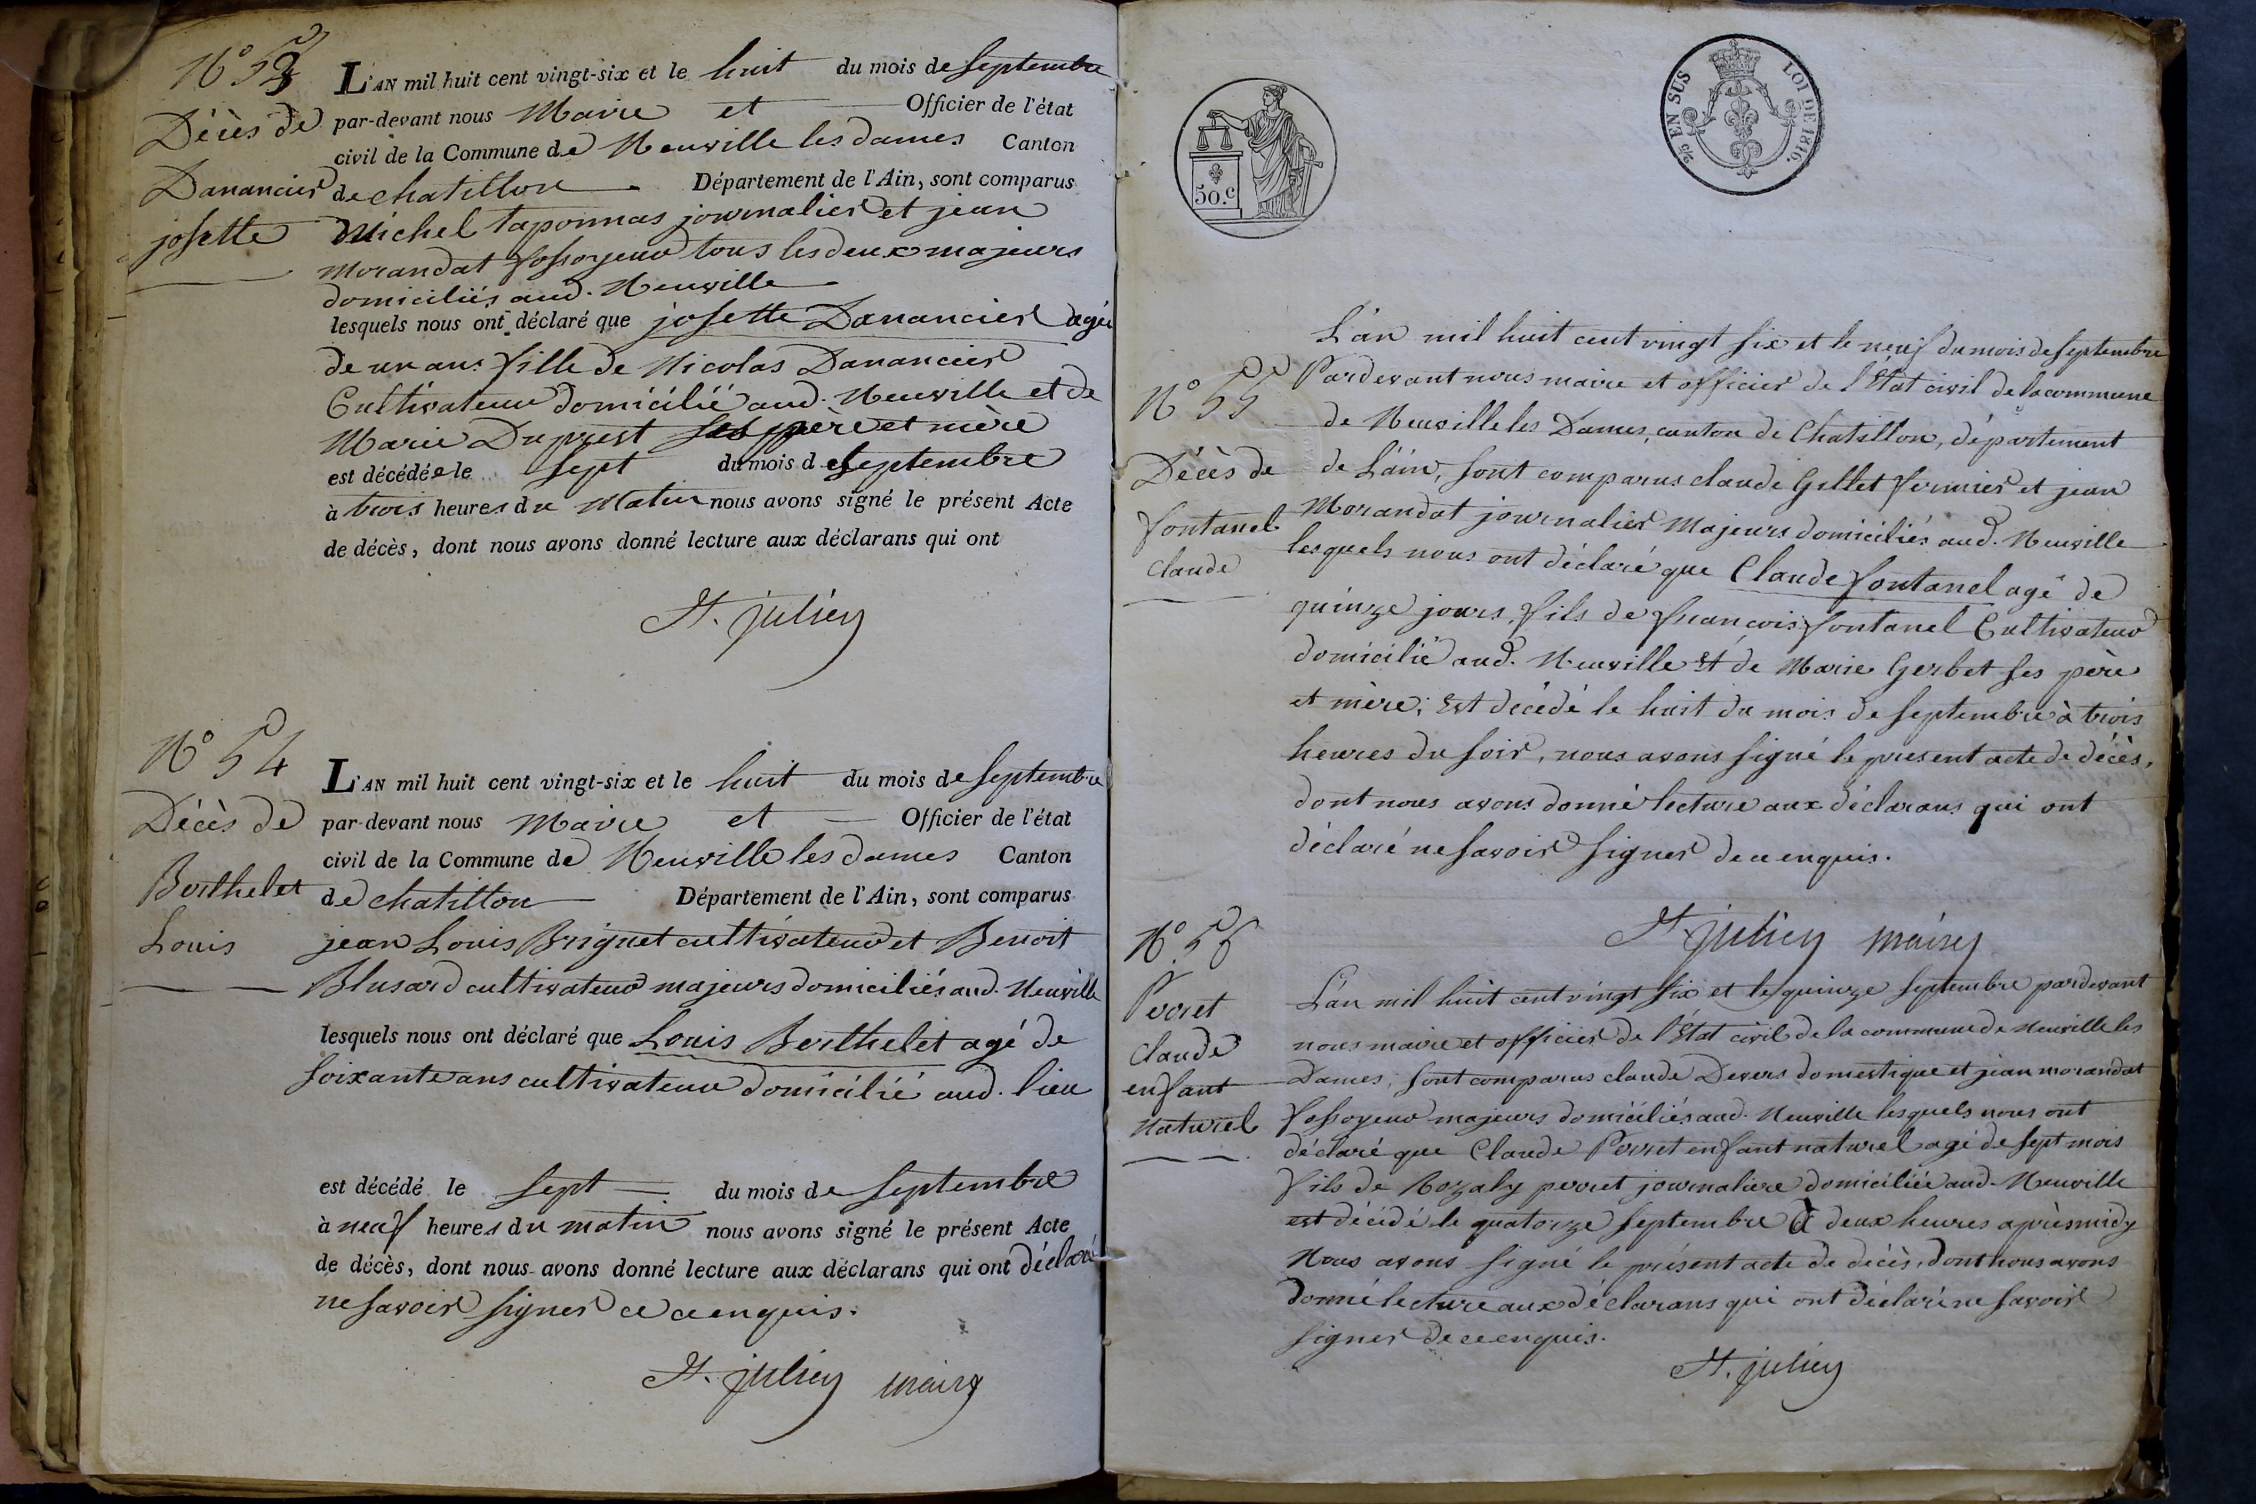 N° 53
Décès de
Danancier
josette
L'AN mil huit cent vingt-six et le huit du mois de septembre
par-devant nous Maire et Officier de l'état
civil de la Commune de Neuville les dames Canton
de chatillon Département de l'Ain, sont comparus
Michel taponnas journalier et jean
morandat fossoyeur tous les deux majeurs
domiciliés aud. Neuville
lesquels nous ont déclaré que josette Danancier agée
de un an. fille de Nicolas Danancier
Cultivateur domicilié aud. Neuville et de
Marie Duprest ses père et mère
est décédée le sept du mois de septembre
à trois heures du Matin nous avons signé le présent Acte
de décès, dont nous avons donné lecture aux déclarans qui ont
St. julien
N° 54
Décès de
Berthelet
Louis
L'AN mil huit cent vingt-six et le huit du mois de septembre
par-devant nous Maire et Officier de l'état
civil de la Commune de Neuville les dames Canton
de chatillon Département de l'Ain, sont comparus
jean Louis Briguet cultivateur et Benoit
Blusard cultivateur majeurs domiciliés aud. Neuville
lesquels nous ont déclaré que Louis Berthelet agé de
soixante ans cultivateur domicilié aud. lieu
est décédé le sept du mois de septembre
à neuf heures du matin nous avons signé le présent Acte
de décès, dont nous avons donné lecture aux déclarans qui ont déclaré
ne savoir signer de ce enquis.
St. julien maire
50.c
2/5 EN SUS LOI DE 1816.
N° 55
Décès de
fontanel
Claude
L'an mil huit cent vingt six et le neuf du mois de septembre
Pardevant nous maire et officier de l'Etat civil de la commune
de Neuville les Dames, canton de Chatillon, département
de L'ain, sont comparus claude Gillet fermier et jean
Morandat journalier Majeurs domiciliés aud. Neuville
lesquels nous ont déclaré que Claude fontanel agé de
quinze jours, fils de françois fontanel Cultivateur
domicilié aud. Neuville Et de Marie Gerbet ses père
et mère; Est décédé le huit du mois de septembre à trois
heures du soir, nous avons signé le present acte de décès,
dont nous avons donné lecture aux déclarans qui ont
déclaré ne savoir signer de ce enquis.
St. julien maire
N° 56
Perret
Claude
enfant
Naturel
L'an mil huit cent vingt six et le quinze septembre pardevant
nous maire et officier de l'Etat civil de la commune de Neuville les
Dames, sont comparus claude Devers domestique et jean morandat
fossoyeur majeurs domiciliés aud. Neuville lesquels nous ont
déclaré que Claude Perret enfant naturel agé de sept mois
fils de Rozaly perret journaliere domiciliée aud. Neuville
est décédé le quatorze septembre à deux heures après midy
Nous avons signé le présent acte de décès, dont nous avons
donné lecture aux déclarans qui ont déclaré ne savoir
signer de ce enquis.
St. julien